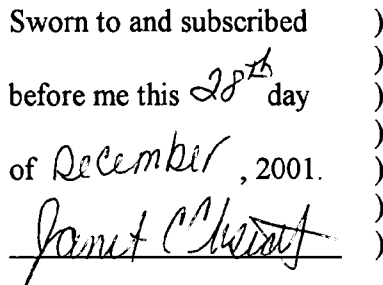 Sworn to and subscribed )
)
before me this 28th day )
)
of December, 2001. )
)
Janet C )